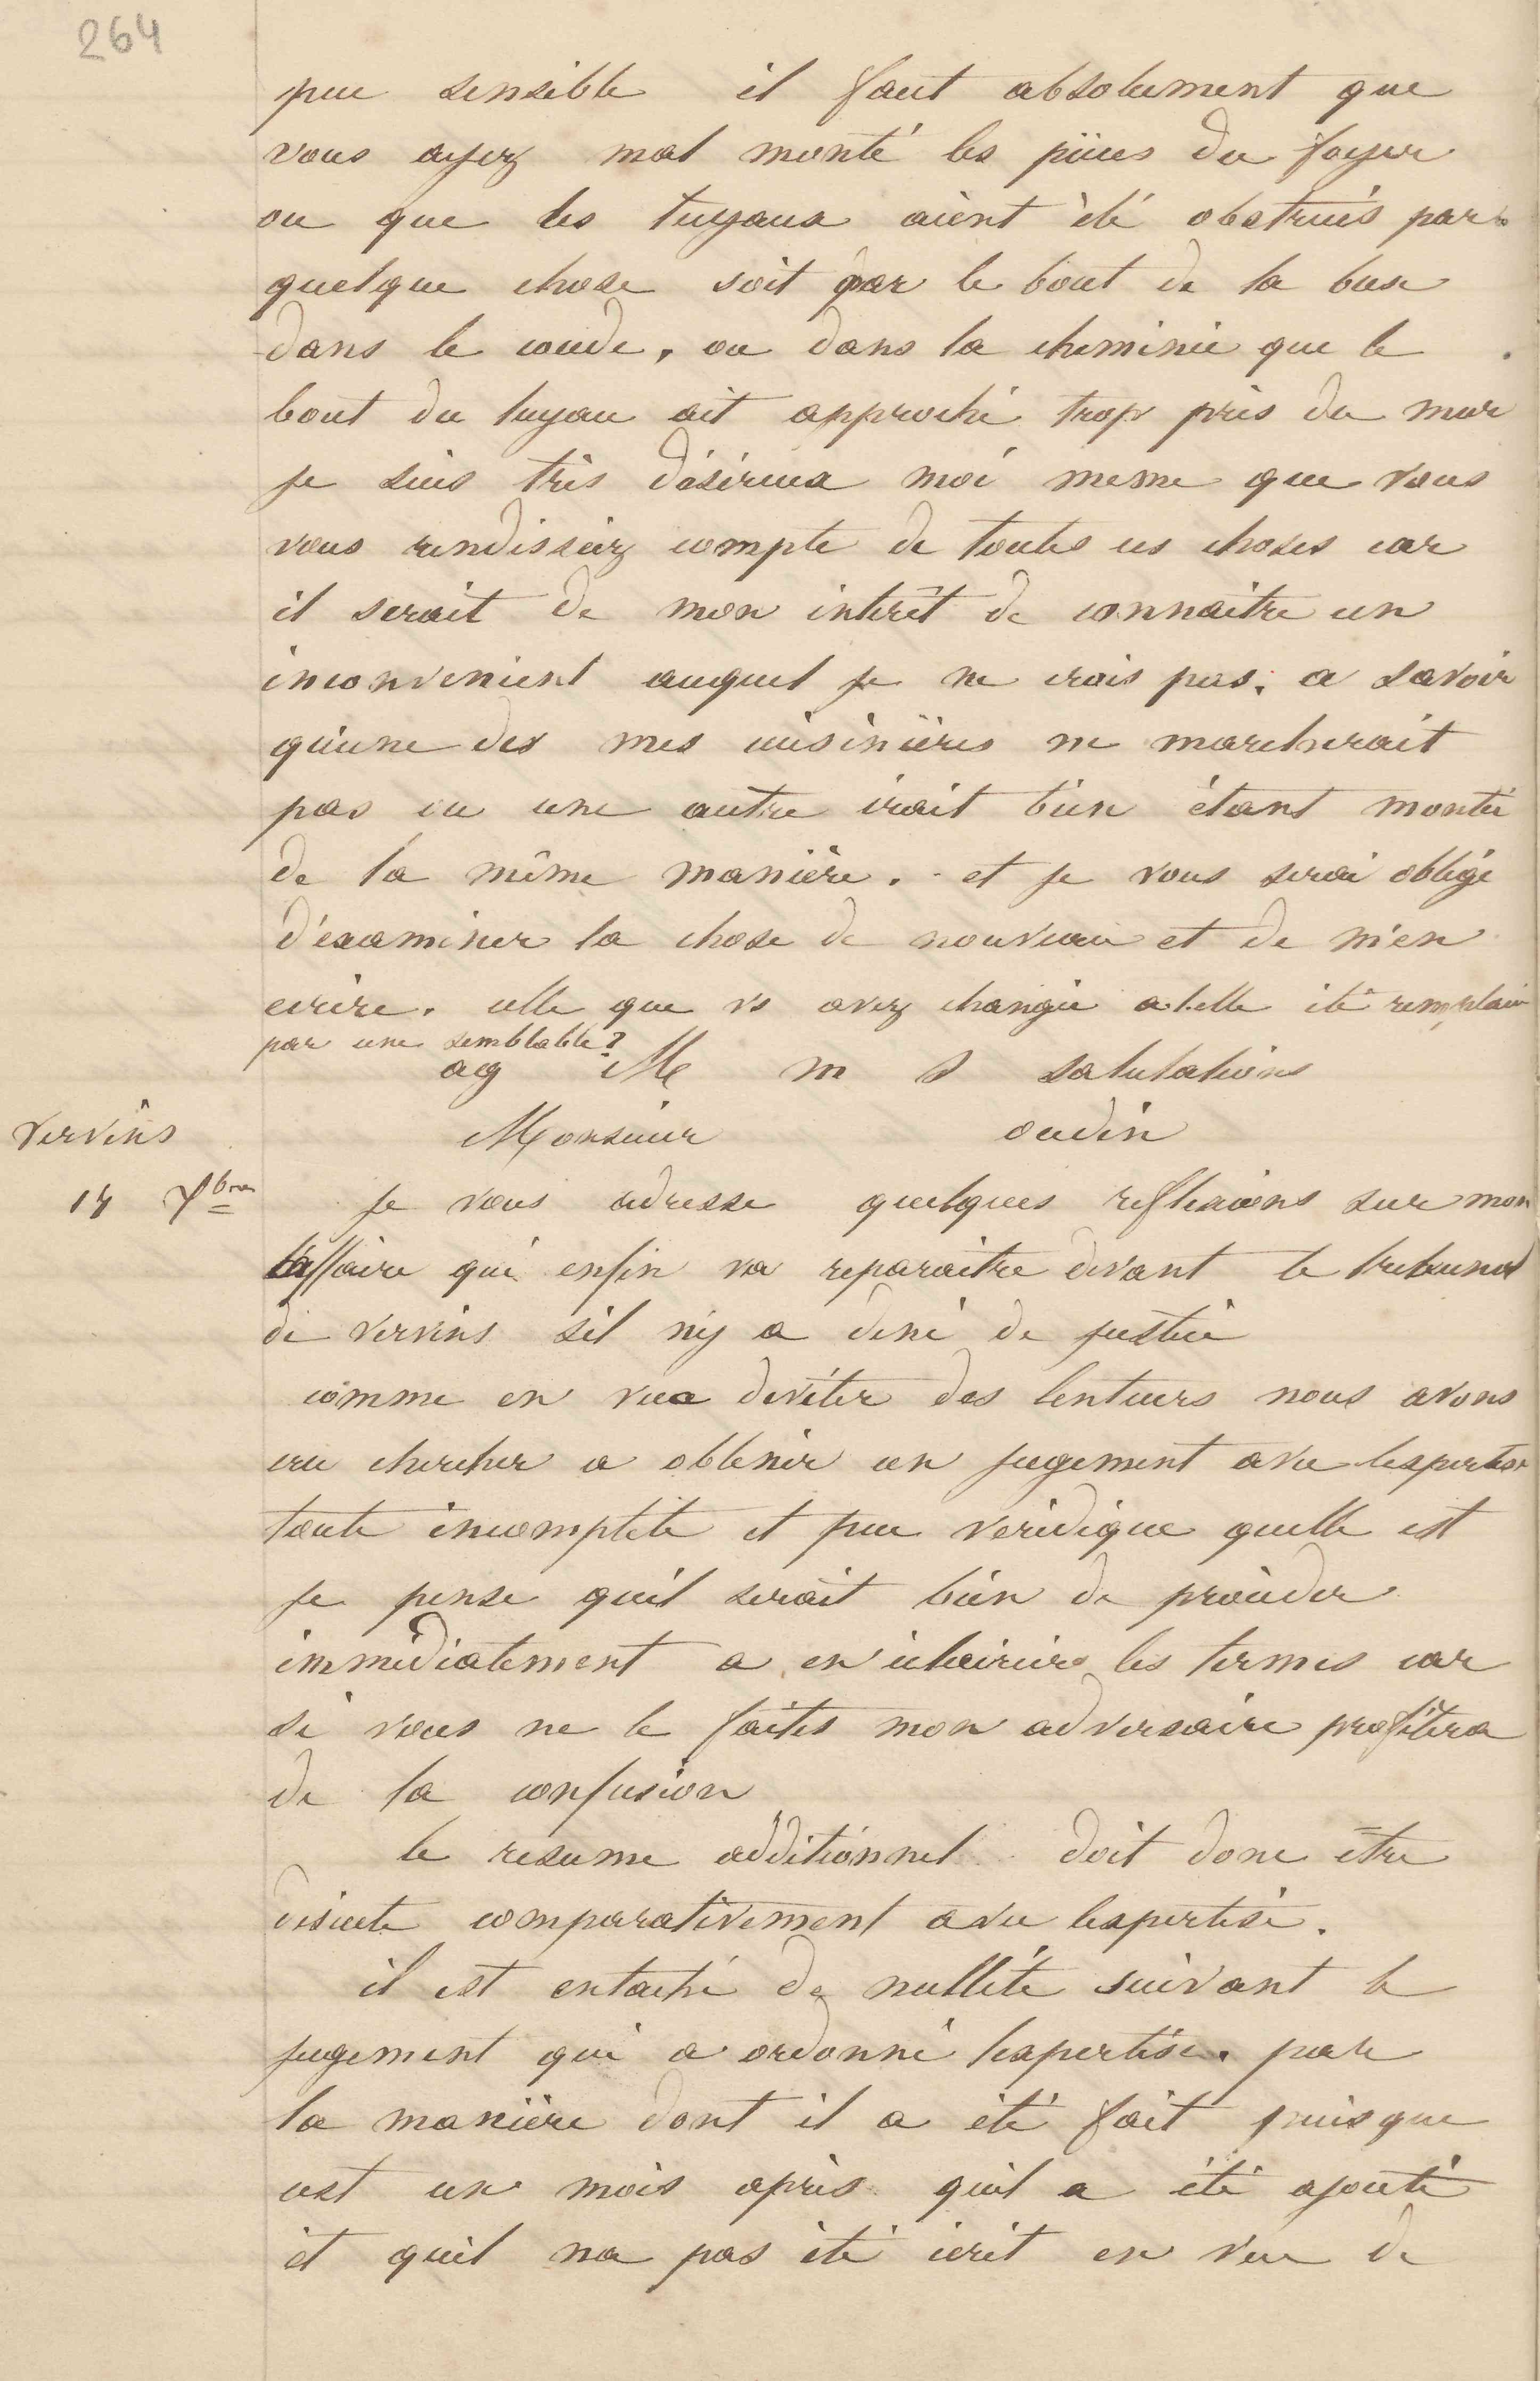 264
peu sensible il faut absolument que
vous ayez mal monté les pièces du foyer
ou que les tuyaux aient été obstrués par
quelque chose soit par le bout de la buse
dans le coude, ou dans la cheminée que le
bout du tuyau ait approché trop près du mur
je suis très désireux moi meme que vous
vous rendissiez compte de toutes ces choses car
il serait de mon intérêt de connaitre un
inconvenient auquel je ne crois pas. a savoir
qu'une des mes cuisinières ne marcherait
pas ou une autre irait bien étant montée
de la même manière. et je vous serai obligé
d'examiner la chose de nouveau et de m'en
ecrire. celle que vs avez changée a-t-elle été remplacée
par une semblable?
ag M m s salutations
Vervins
14 Xbre
Monsieur oudin
Je vous adresse quelques reflexions sur mon
affaire qui enfin va reparaitre devant le tribunal
de Vervins sil ny a deni de justice
comme en vue deviter des lenteurs nous avons
cru chercher a obtenir un jugement avec lexpertise
toute incomplete et peu veridique quelle est
je pense quil serait bien de procéder
immédiatement a en eclaircir les termes car
si vous ne le faites mon adversaire profitera
de la confusion
le resume additionnel doit donc être
discute comparativement avec lexpertise.
il est entaché de nullité suivant le
jugement qui a ordonné lexpertise. par
la manière dont il a été fait puisque
cest un mois après quil a été ajouté
et quil na pas été écrit en vue de